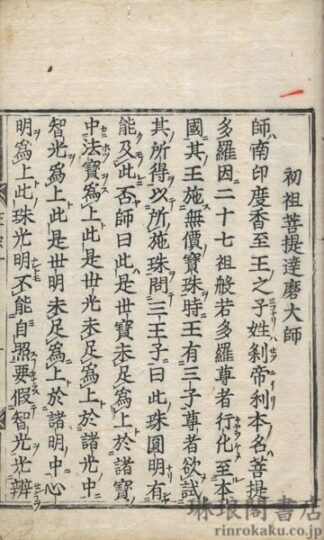 初祖菩提達磨大師
師南印度香至王之子姓刹帝利本名菩提
多羅因二十七祖般若多羅尊者行化至本
國其王施無價寶珠時王有三子尊者欲試
其所得以所施珠問三王子曰此珠圓明有
能及此否師曰此是世寶未足爲上於諸寶
中法寶爲上此是世光未足爲上於諸光中
智光爲上此是世明未足爲上於諸明中心
明爲上此珠光明不能自照要假智光光辨
琳琅閣書店
www.rinrokaku.co.jp